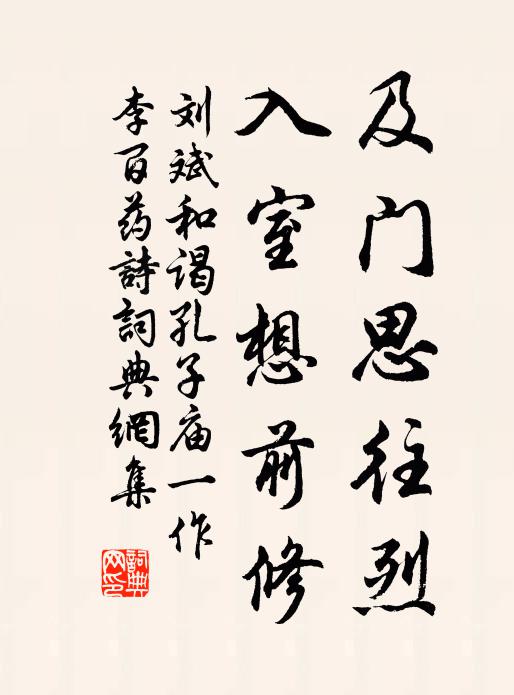 及门思往烈
入室想前修
刘斌和谒孔子庙一作
李百药詩詞典網集
詞典网印